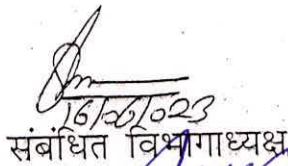 16/06/2023
संबंधित विभागाध्यक्ष